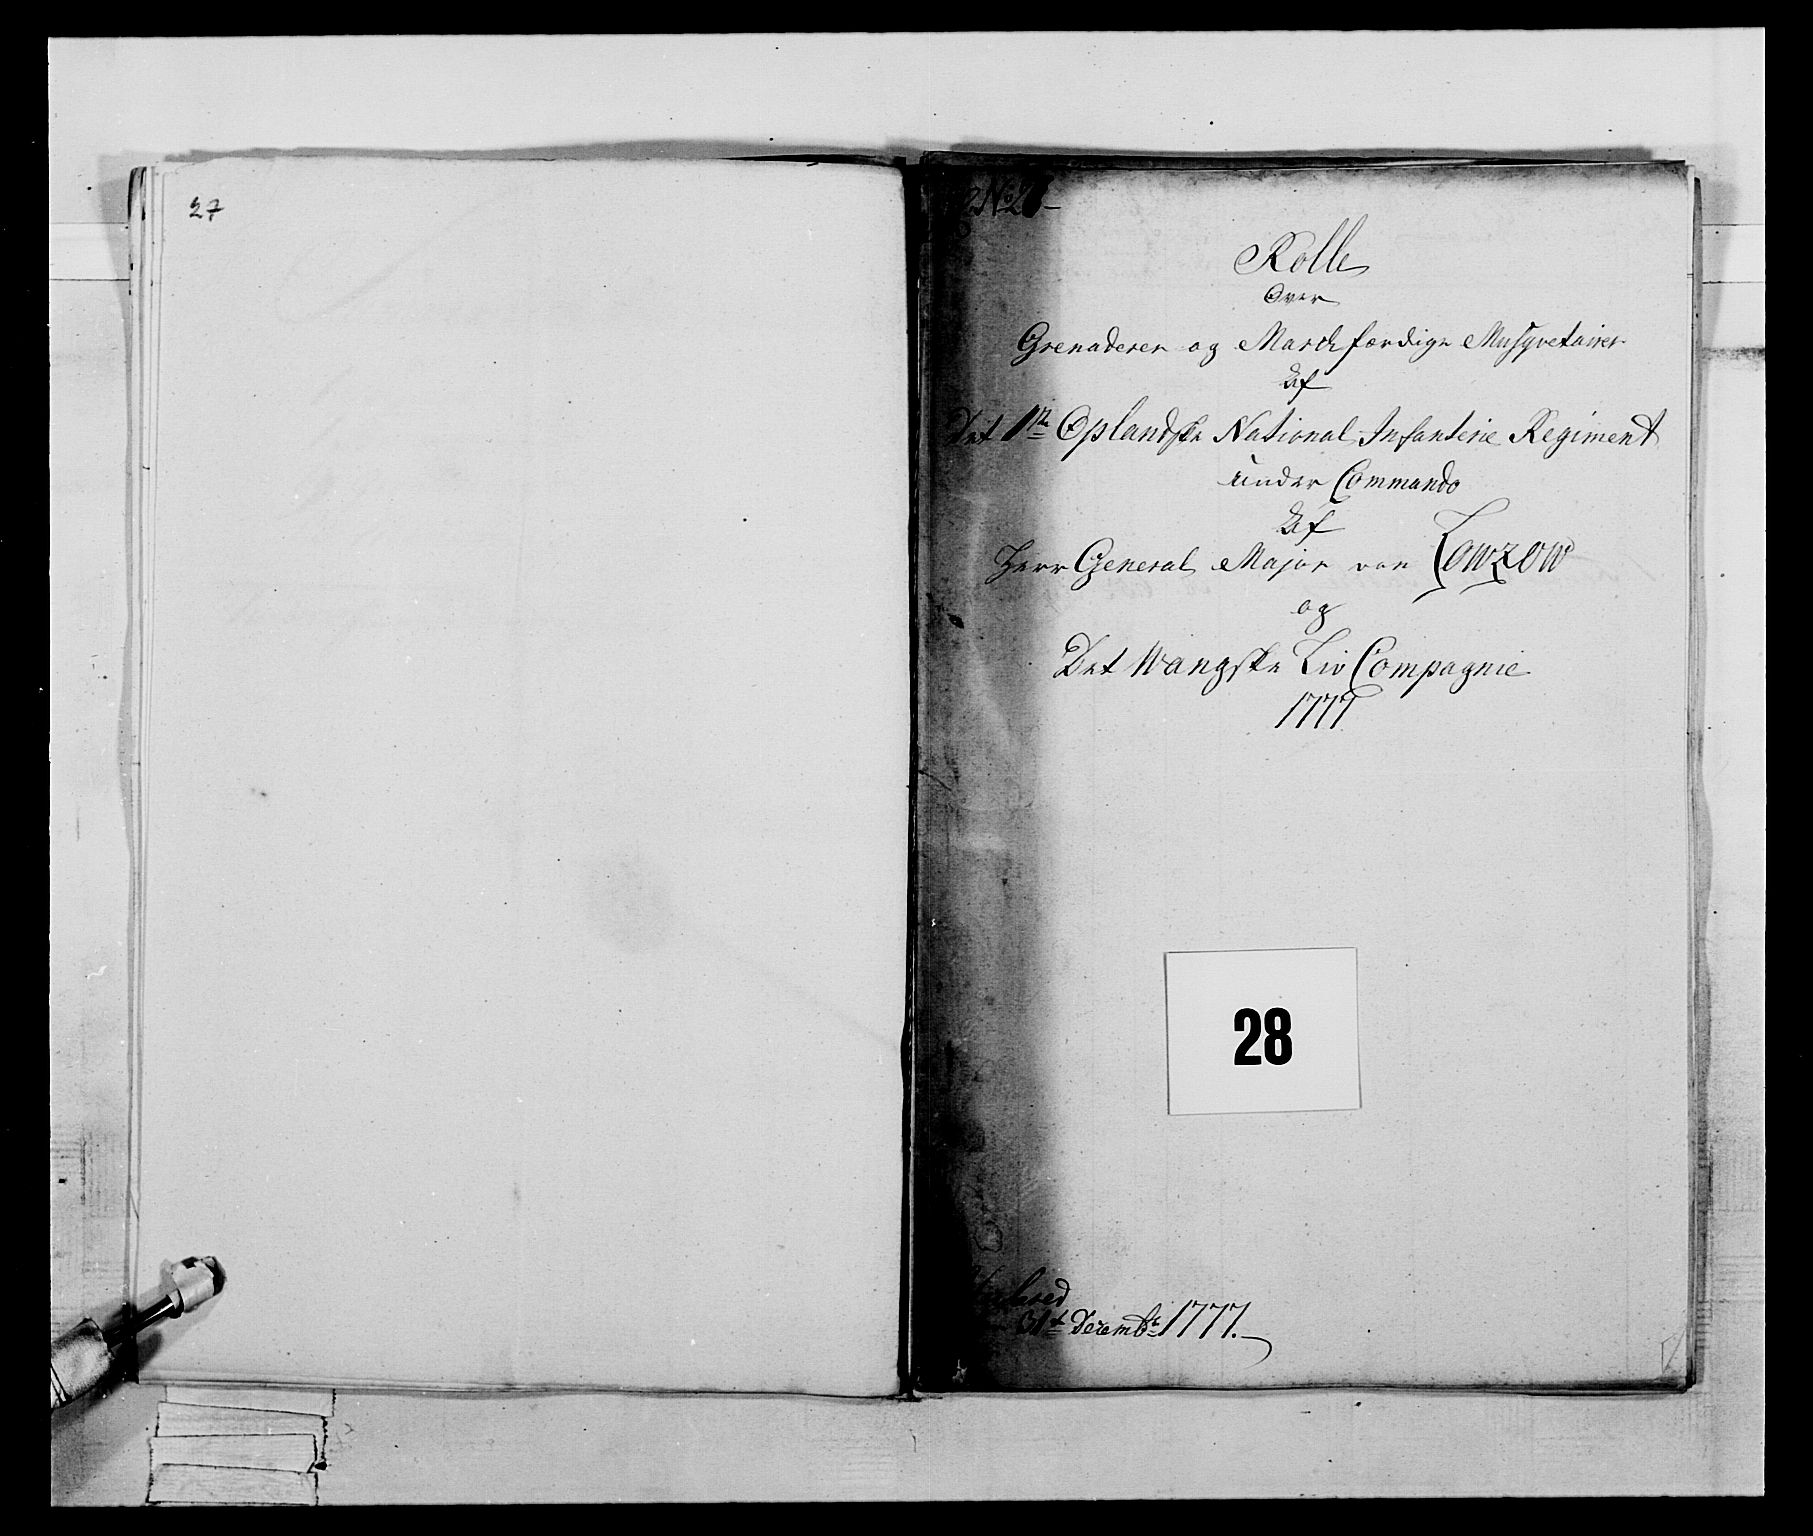 27
Rolle
Over
Grenaderer og Marchfærdige Musqvetairer
Af
Det 1te Oplandske National Infanterie Regiment
under Commando
Af
Herr General Major von Lowzow
og
Det Wangske Liv Compagnie
1777
28
31te Decembr 1777.